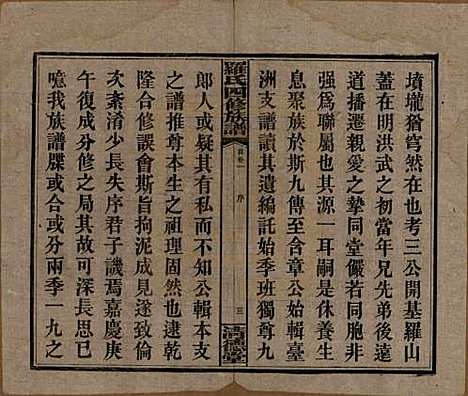 墳壠猶穹然在也考三公開基羅山
蓋在明洪武之初當年兄先弟後遠
道播遷親愛之摯同堂儼若同胞非
强爲聯屬也其源一耳嗣是休養生
息聚族於斯九傳至含章公始輯臺
洲支譜讀其遺編託始季班獨尊九
羅氏四修族譜
卷一
序
三
郎人或疑其有私而不知公輯本支
之譜推尊本生之祖理固然也逮乾
隆合修誤會斯旨拘泥成見遂致倫
次紊淆少長失序君子譏焉嘉慶庚
午復成分修之局其故可深長思已
噫我族譜牒或合或分兩季一九之